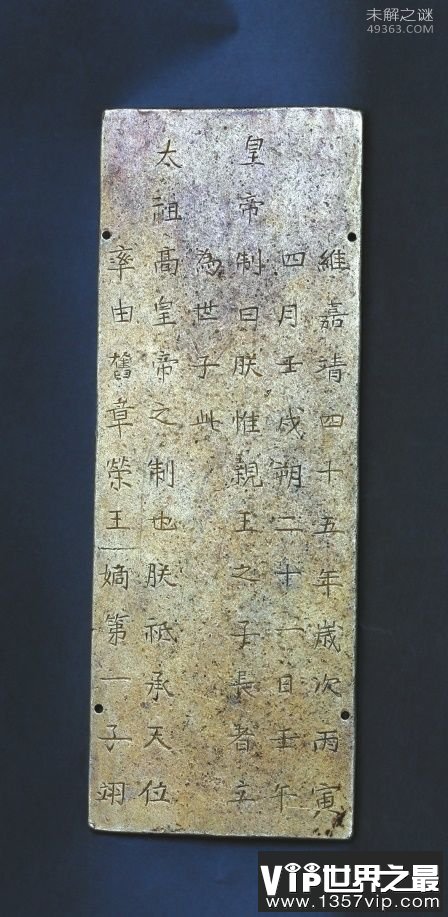 未解之谜
49363.com
維嘉靖四十五年歲次丙寅
四月壬戌朔二十一日壬午
皇帝制曰朕惟親王之子長者立
為世子此
太祖高皇帝之制也朕祗承天位
率由舊章榮王嫡第一子翊
VIP世界之最
www.1357vip.com